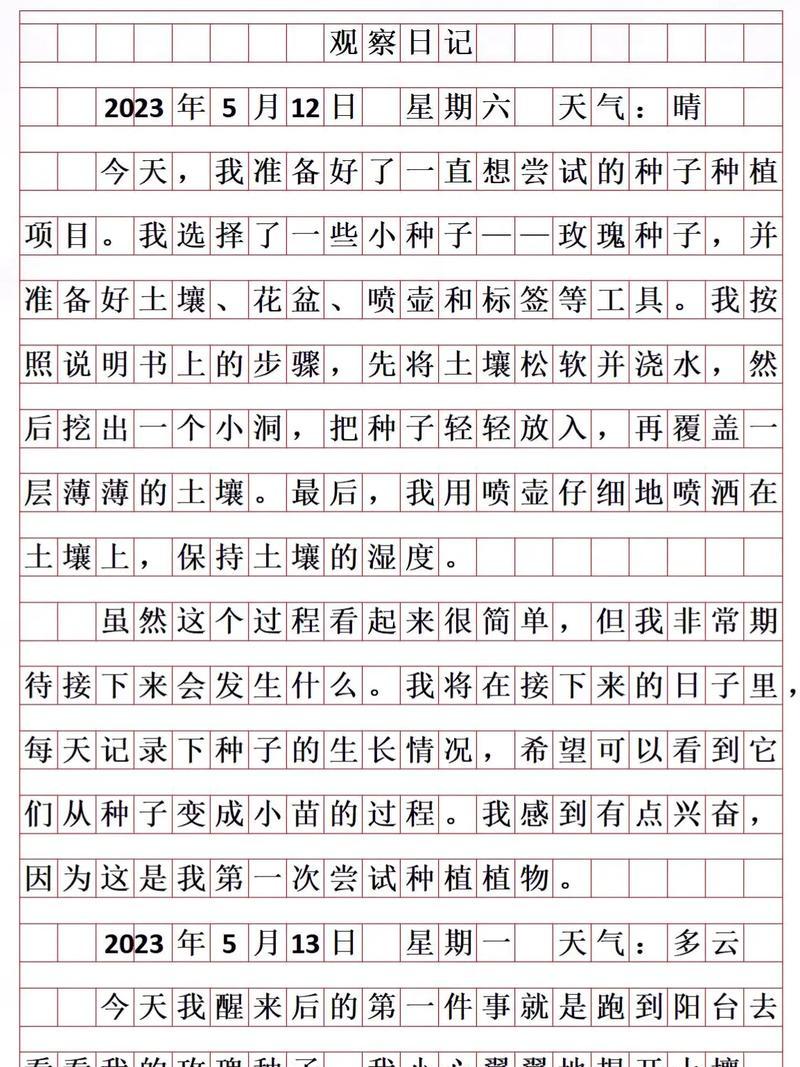 观察日记
2023年5月12日 星期六 天气：晴
今天，我准备好了一直想尝试的种子种植
项目。我选择了一些小种子——玫瑰种子，并
准备好土壤、花盆、喷壶和标签等工具。我按
照说明书上的步骤，先将土壤松软并浇水，然
后挖出一个小洞，把种子轻轻放入，再覆盖一
层薄薄的土壤。最后，我用喷壶仔细地喷洒在
土壤上，保持土壤的湿度。
虽然这个过程看起来很简单，但我非常期
待接下来会发生什么。我将在接下来的日子里，
每天记录下种子的生长情况，希望可以看到它
们从种子变成小苗的过程。我感到有点兴奋，
因为这是我第一次尝试种植植物。
2023年5月13日 星期一 天气：多云
今天我醒来后的第一件事就是跑到阳台去
看看我的玫瑰种子。我小心翼翼地揭开土壤